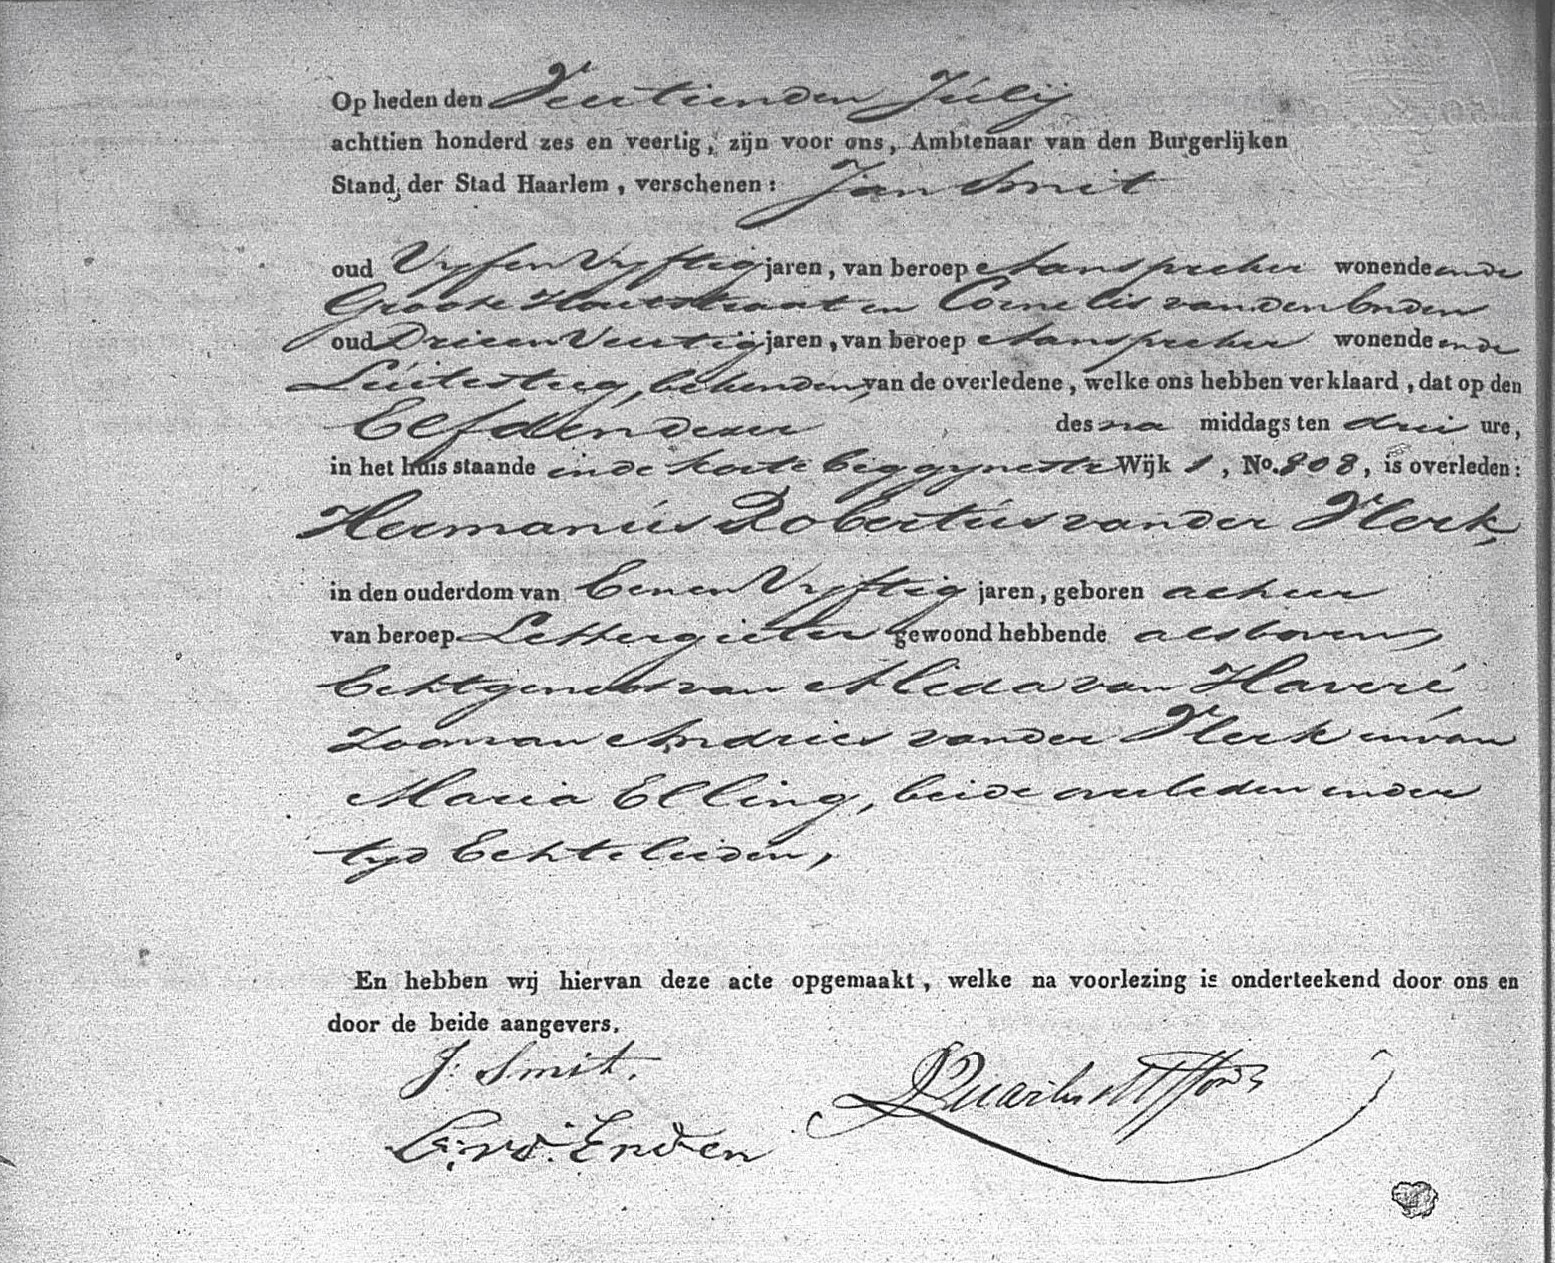 Op heden den Veertienden Julij
achttien honderd zes en veertig, zijn voor ons, Ambtenaar van den Burgerlijken
Stand, der Stad Haarlem, verschenen: Jan Smit
oud Vyf en Vyftig jaren, van beroep Aanspreker wonende in de
Groote Houtstraat en Cornelis van den Enden
oud Drie en Veertig jaren, van beroep Aanspreker wonende in de
behenden, van de overledene, welke ons hebben verklaard, dat op den
Elfden dezer des na middags ten drie ure,
in het huis staande in de korte beggynestr Wijk 1, No. 808, is overleden:
Hermanús Robertús van der Vlerk,
in den ouderdom van Een en Vyftig jaren, geboren alhier
van beroep Lettergieter gewoond hebbende als boven,
Echtgenoot van Alida van Haveré
Zoon van Andries van der Vlerk en van
Maria Elling, beide overleden in der
tyd Echtelieden,
En hebben wij hiervan deze acte opgemaakt, welke na voorlezing is onderteekend door ons en
door de beide aangevers.
J: Smit.
C: vd: Enden